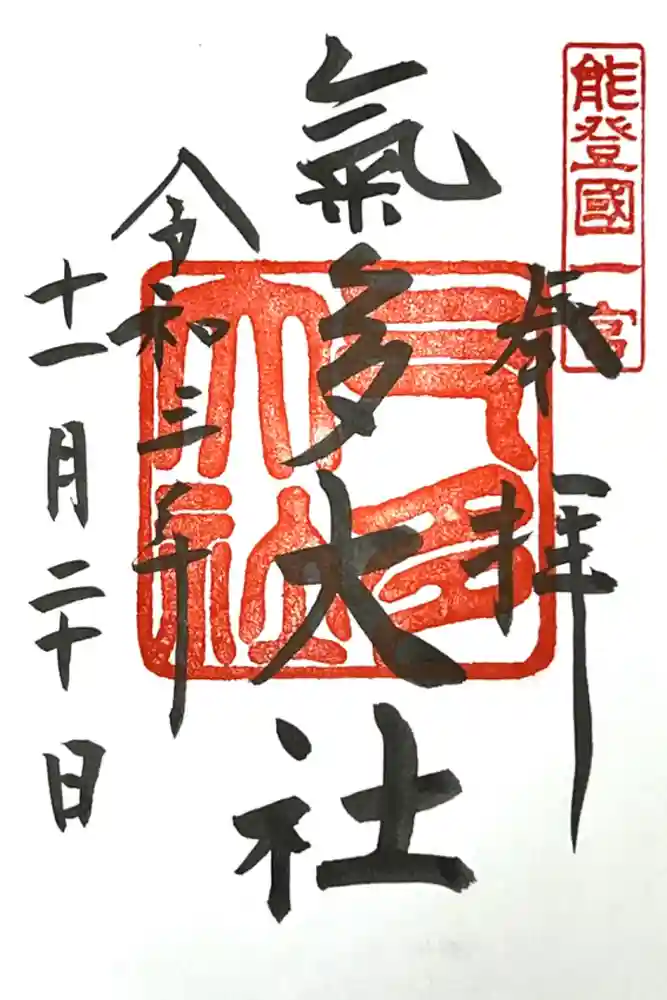 能登國一宮
奉拝
氣多大社
气多大社
令和三年
十一月二十日